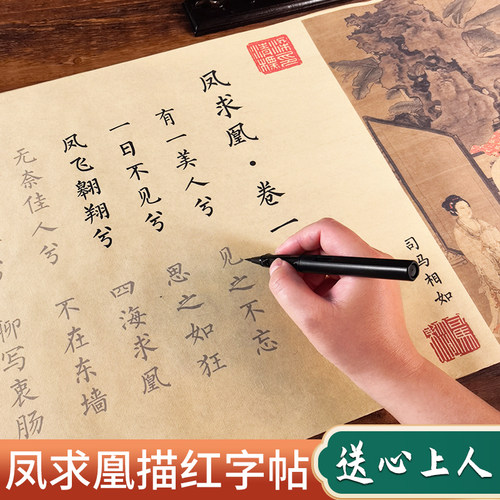 凤求凰·卷一
司马相如
有一美人兮
见之不忘
一日不见兮
思之如狂
凤飞翱翔兮
四海求凰
无奈佳人兮
不在东墙
聊写衷肠
凤求凰描红字帖
送心上人